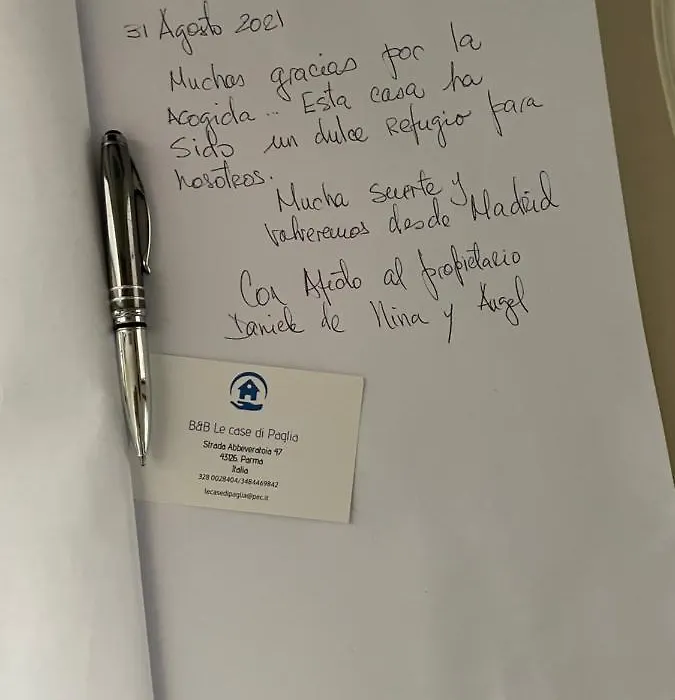 31 Agosto 2021
Muchas gracias por la
Acogida... Esta casa ha
Sido un dulce Refugio para
nosotros.
Mucha suerte y
volveremos desde Madrid
Con Afecto al propietario
Daniele de Nina y Ángel
B&B Le case di Paglia
Strada Abbeveratoia 47
43126 Parma
Italia
328 0028404/3484469842
lecasedipaglia@pec.it